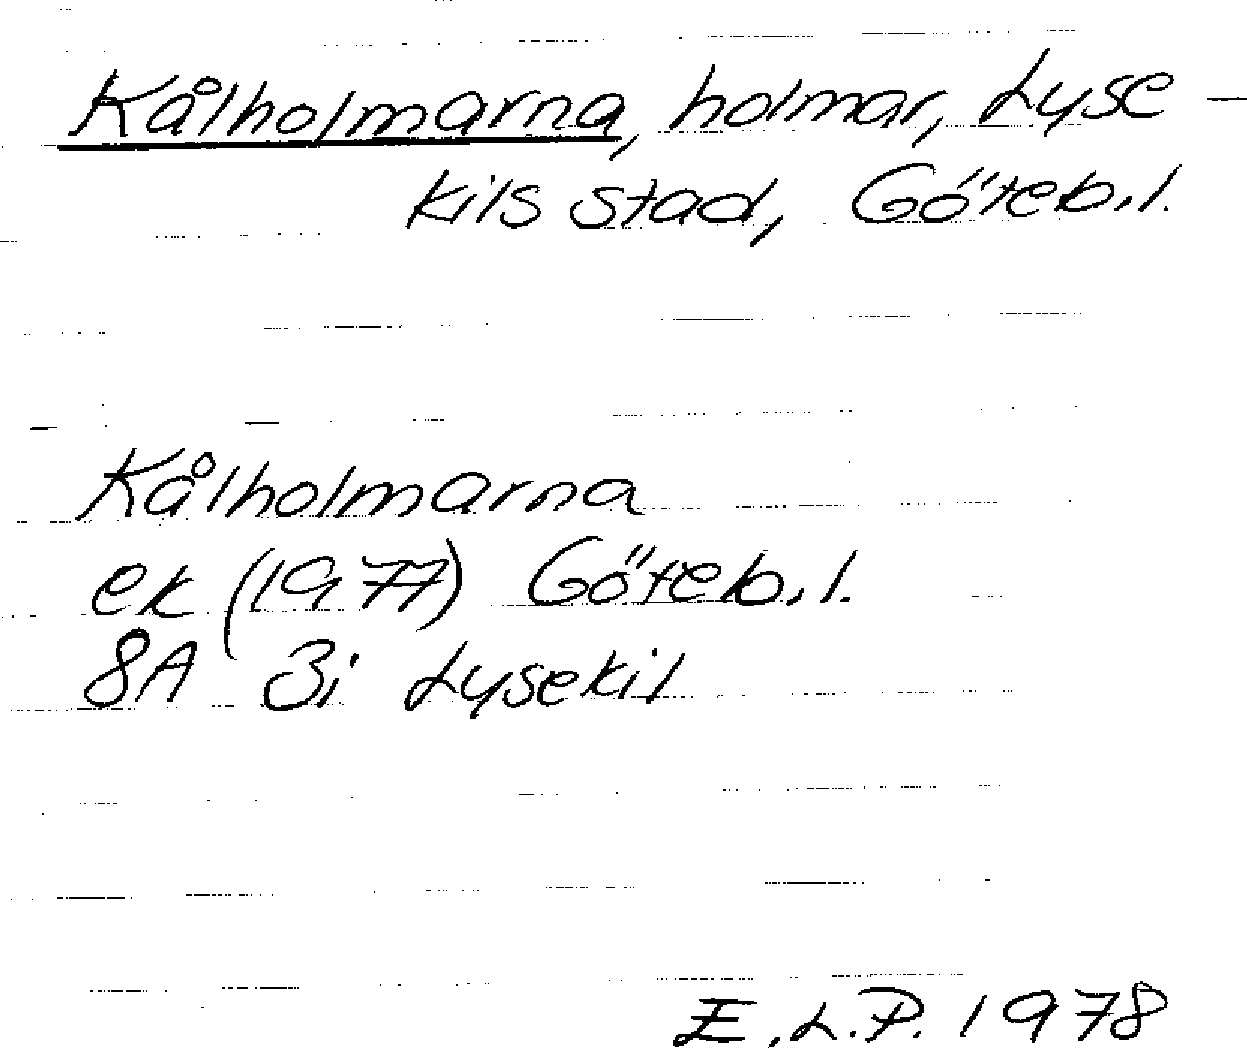 Kålholmarna, holmar, Lyse-
kils stad, Göteb.l.
Kålholmarna
ek (1977) Göteb.l.
8A 3i Lysekil
E.L.P. 1978